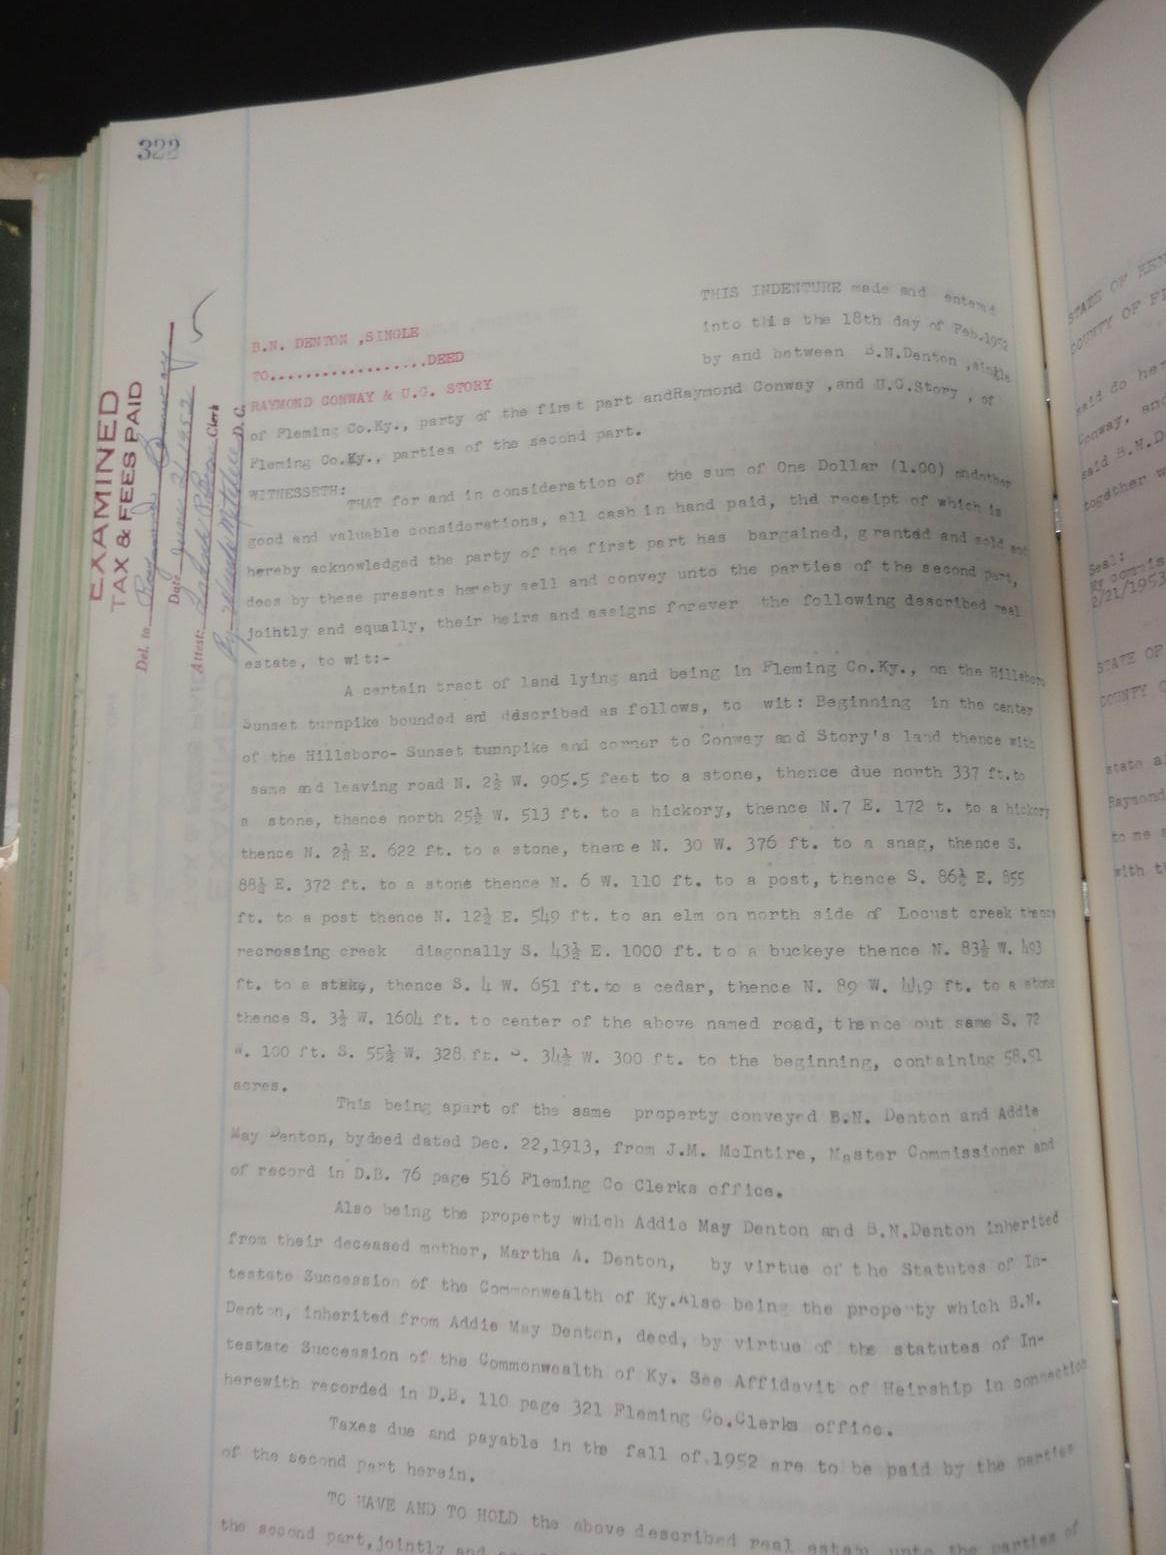 322
EXAMINED
TAX & FEES PAID
Del. to Raymond Conway
Date June 21, 1952
Attest: Clerk
By D. C.
B.N. DENTON ,SINGLE
TO..................DEED
RAYMOND CONWAY & U.G. STORY
THIS INDENTURE made and entered
into this the 18th day of Feb.1952
by and between B.N.Denton ,single
of Fleming Co.Ky., party of the first part andRaymond Conway ,and U.G.Story , of
Fleming Co.Ky., parties of the second part.
WITNESSETH:
THAT for and in consideration of the sum of One Dollar (1.00) andother
good and valuable considerations, all cash in hand paid, thd receipt of which is
hereby acknowledged the party of the first part has bargained, granted and sold and
does by these presents hereby sell and convey unto the parties of the second part,
jointly and equally, their heirs and assigns forever the following described real
estate, to wit:-
A certain tract of land lying and being in Fleming Co.Ky., on the Hillsboro
Sunset turnpike bounded and described as follows, to wit: Beginning in the center
of the Hillsboro- Sunset turnpike and corner to Conway and Story's land thence with
same and leaving road N. 2½ W. 905.5 feet to a stone, thence due north 337 ft.to
a stone, thence north 25½ W. 513 ft. to a hickory, thence N.7 E. 172 t. to a hickory
thence N. 2½ E. 622 ft. to a stone, thence N. 30 W. 376 ft. to a snag, thence S.
88½ E. 372 ft. to a stone thence N. 6 W. 110 ft. to a post, thence S. 86½ E. 855
ft. to a post thence N. 12½ E. 549 ft. to an elm on north side of Locust creek thence
recrossing creek diagonally S. 43½ E. 1000 ft. to a buckeye thence N. 83½ W. 493
ft. to a stake, thence S. 4 W. 651 ft.to a cedar, thence N. 89 W. 449 ft. to a stone
thence S. 3½ W. 1604 ft. to center of the above named road, thence out same S. 72
W. 100 ft. S. 55½ W. 328 ft. S. 34½ W. 300 ft. to the beginning, containing 58.51
acres.
This being apart of the same property conveyed B.N. Denton and Addie
May Denton, bydeed dated Dec. 22,1913, from J.M. McIntire, Master Commissioner and
of record in D.B. 76 page 516 Fleming Co Clerks office.
Also being the property which Addie May Denton and B.N.Denton inherited
from their deceased mother, Martha A. Denton, by virtue of the Statutes of In-
testate Succession of the Commonwealth of Ky.Also being the property which B.N.
Denton, inherited from Addie May Denton, decd, by virtue of the statutes of In-
testate Succession of the Commonwealth of Ky. See Affidavit of Heirship in connection
herewith recorded in D.B. 110 page 321 Fleming Co.Clerks office.
Taxes due and payable in the fall of.1952 are to be paid by the parties
of the second part herein.
TO HAVE AND TO HOLD the above described real estate unto the parties of
the second part,jointly and
STATE OF KEN
COUNTY OF FL
said do her
Conway, and
said B.N.D
together w
Seal:
My commis
2/21/1953
STATE OF
COUNTY O
state a
Raymond
to me
with th